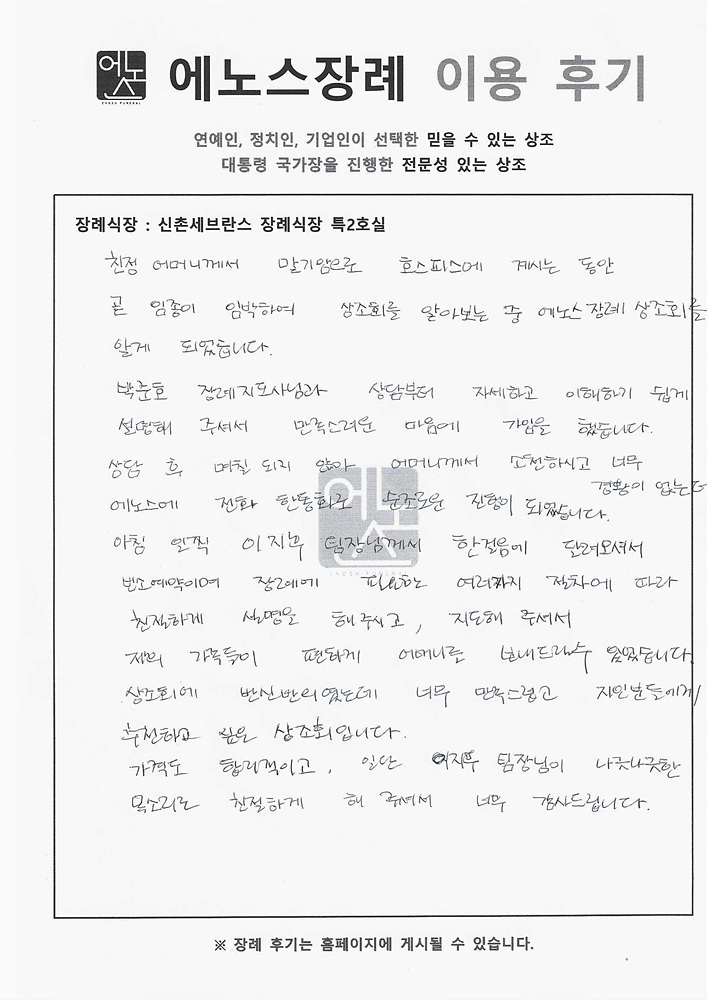 에노스
ENOSH FUNERAL
에노스장례 이용 후기
연예인, 정치인, 기업인이 선택한 믿을 수 있는 상조
대통령 국가장을 진행한 전문성 있는 상조
장례식장 : 신촌세브란스 장례식장 특2호실
친정 어머니께서 말기암으로 호스피스에 계시는 동안
곧 임종이 임박하여 상조회를 알아보는 중 에노스장례 상조회를
알게 되었습니다.
박준호 장례지도사님과 상담부터 자세하고 이해하기 쉽게
설명해 주셔서 만족스러운 마음에 가입을 했습니다.
상담 후 며칠 되지 않아 어머니께서 소천하시고 너무
경황이 없는데
에노스에 전화 한통화로 순조로운 진행이 되었습니다.
아침 일찍 이지부 팀장님께서 한걸음에 달려오셔서
빈소예약이며 장례에 필요한 여러가지 절차에 따라
친절하게 설명을 해주시고, 지도해 주셔서
저희 가족들이 편하게 어머니를 보내드릴수 있었습니다.
상조회에 반신반의였는데 너무 만족스럽고 지인분들에게
추천하고 싶은 상조회입니다.
가격도 합리적이고, 일단 이지부 팀장님이 나긋나긋한
목소리로 친절하게 해 주셔서 너무 감사드립니다.
에노스
※ 장례 후기는 홈페이지에 게시될 수 있습니다.